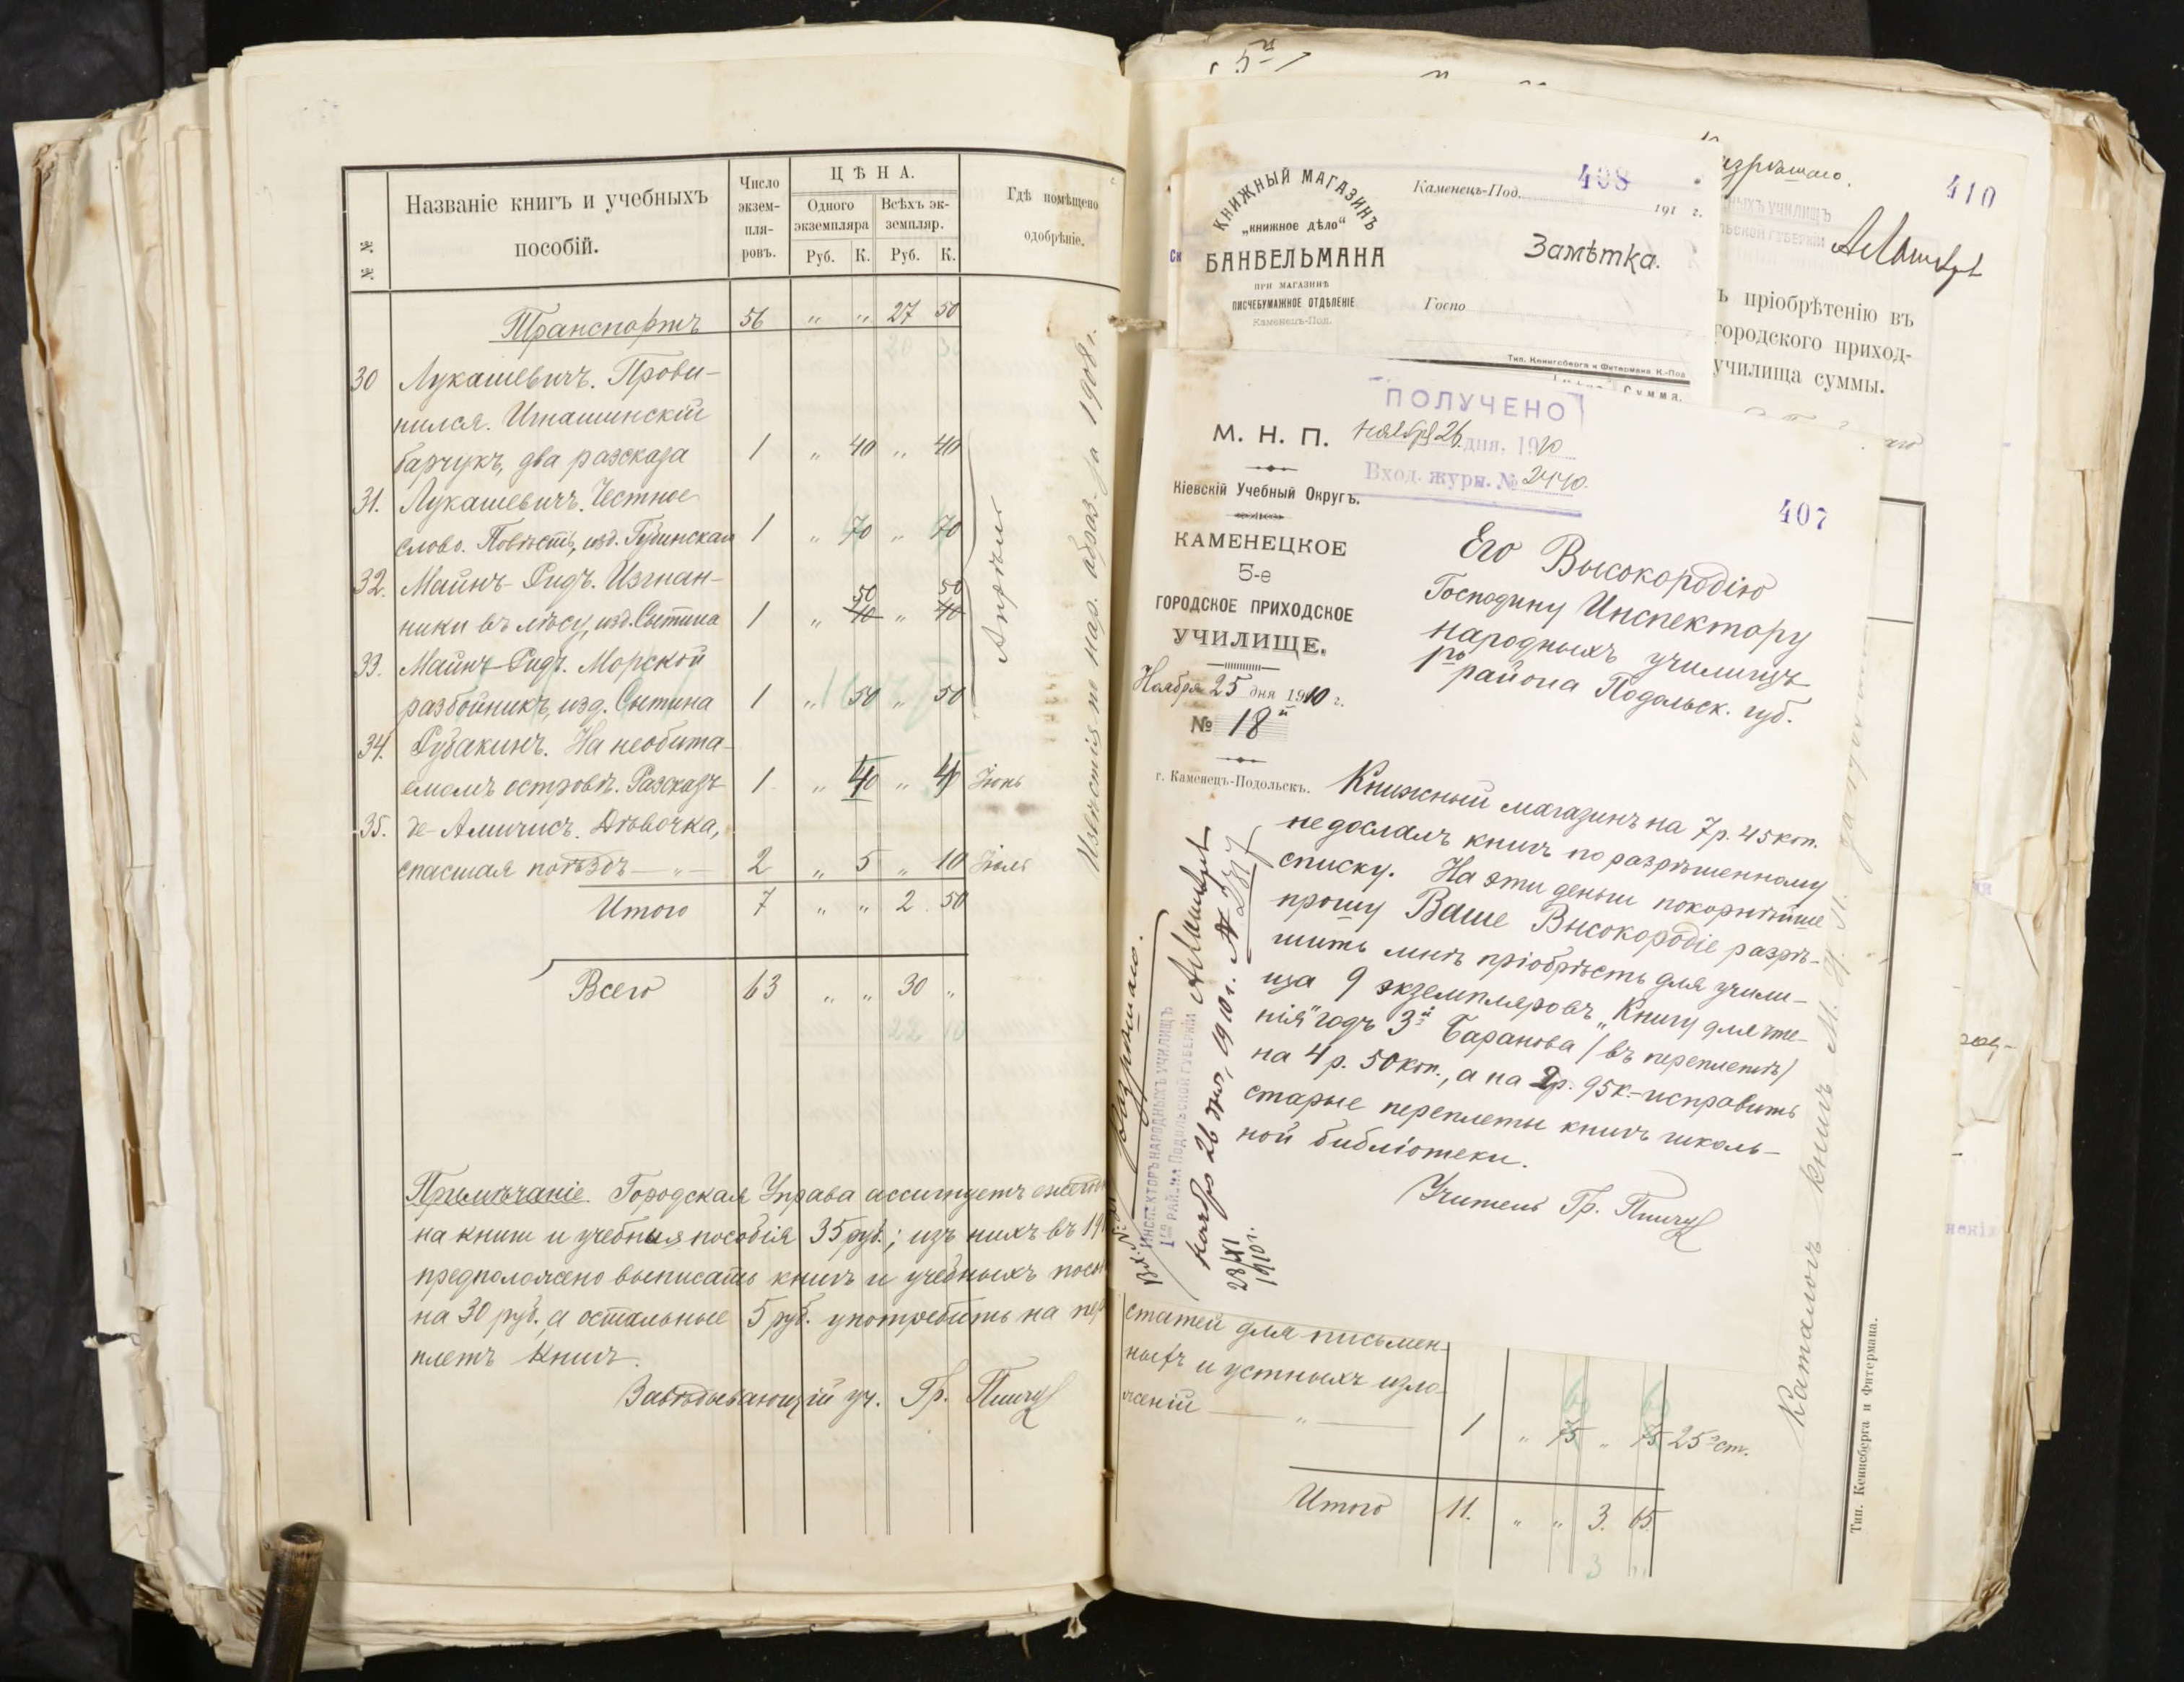 № №
Названіе книгъ и учебныхъ
пособій.
Число
экзем-
пля-
ровъ.
ЦѢНА.
Одного
экземпляра
Всѣхъ эк-
земпляр.
Руб. К. Руб. К.
Гдѣ помѣщено
одобрѣніе.
Транспортъ 56 „ „ 27 50
30 Лукашевичъ. Прови-
нился. Игнашинскій
барчукъ, два разсказа 1 „ 40 „ 40
31. Лукашевичъ. Честное
слово. Повѣсть, изд. Губинская 1 „ 70 „ 70
32. Майнъ-Ридъ. Изгнан-
50 50
ники въ лѣсу, изд. Сытина 1 „ 40 „ 40
33. Майнъ-Ридъ. Морской
разбойникъ, изд. Сытина 1 „ 50 „ 50
Апрѣль
34. Рубакинъ. На необита-
емомъ островѣ. Разсказъ 1 „ 40 „ 40 Іюнь
35. де-Амичисъ. Дѣвочка,
спасшая поѣздъ — „ — 2 „ 5 „ 10 Іюль
Итого 7 „ „ 2 50
Всего 63 „ „ 30 „
Извѣстія по нар. образ. за 1908 г.
Примѣчаніе. Городская Управа ассигнуетъ
на книги и учебныя пособія 35 руб.; изъ нихъ въ 19
предположено выписать книгъ и учебныхъ посо
на 30 руб., а остальные 5 руб. употребить на пере
плетъ книгъ.
Завѣдывающій уч. Гр.
КНИЖНЫЙ МАГАЗИНЪ
„книжное дѣло“
БАНВЕЛЬМАНА
ПРИ МАГАЗИНѢ
ПИСЧЕБУМАЖНОЕ ОТДѢЛЕНІЕ
Каменецъ-Под.
408
Каменецъ-Под. 191 г.
Замѣтка.
Госпо
Тип. Кенигсберга и Фитермана К.-Под
Сумма.
410
ъ пріобрѣтенію въ
городского приход-
училища суммы.
ПОЛУЧЕНО
Ноября 26 дня. 1910
Вход. журн. № 2440.
407
М. Н. П.
Кіевскій Учебный Округъ.
КАМЕНЕЦКОЕ
5-е
ГОРОДСКОЕ ПРИХОДСКОЕ
УЧИЛИЩЕ.
Ноября 25 дня 1910 г.
№ 18
г. Каменецъ-Подольскъ.
Его Высокородію
Господину Инспектору
народныхъ училищъ
1го района Подольск. губ.
Книжный магазинъ на 7 р. 45 коп.
не дослалъ книгъ по разрѣшенному
списку. На эти деньги покорнѣйше
прошу Ваше Высокородіе разрѣ-
шить мнѣ пріобрѣсть для учили-
ща 9 экземпляровъ „Книгу для чте-
нія“ годъ 3й Баранова (въ переплетѣ)
на 4 р. 50 коп., а на 2 р. 95 к.-исправить
старые переплеты книгъ школь-
ной библіотеки.
Учитель Гр.
Разрѣшаю.
ИНСПЕКТОРЪ НАРОДНЫХЪ УЧИЛИЩЪ
1го РАЙОНА ПОДОЛЬСКОЙ ГУБЕРНІИ
Ноября 26 дня, 1910 г.
28/XI
1910 г.
статей для письмен-
ныхъ и устныхъ изло-
женій — „ — 1 „ 75 „ 75 25 ст.
60 60
Итого 11. „ „ 3. 65
3 „
Каталогъ книгъ М. Н. П.
Тип. Кенигсберга и Фитермана.